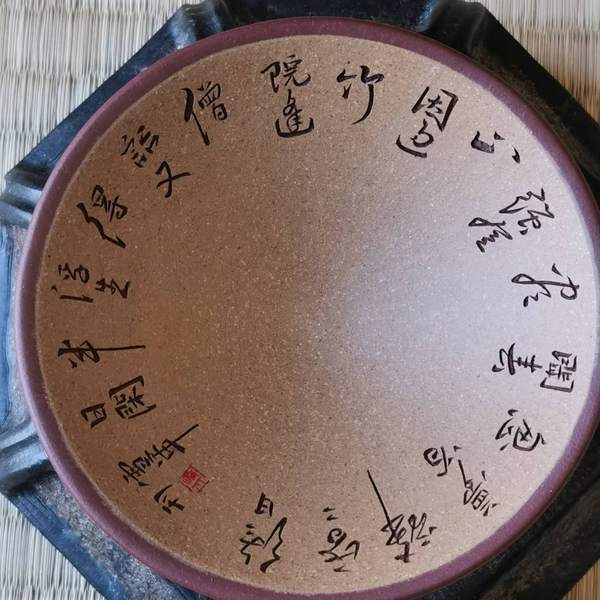 終日昏々醉夢間忽聞春尽強登山因過竹院逢僧話又得浮生半日閑